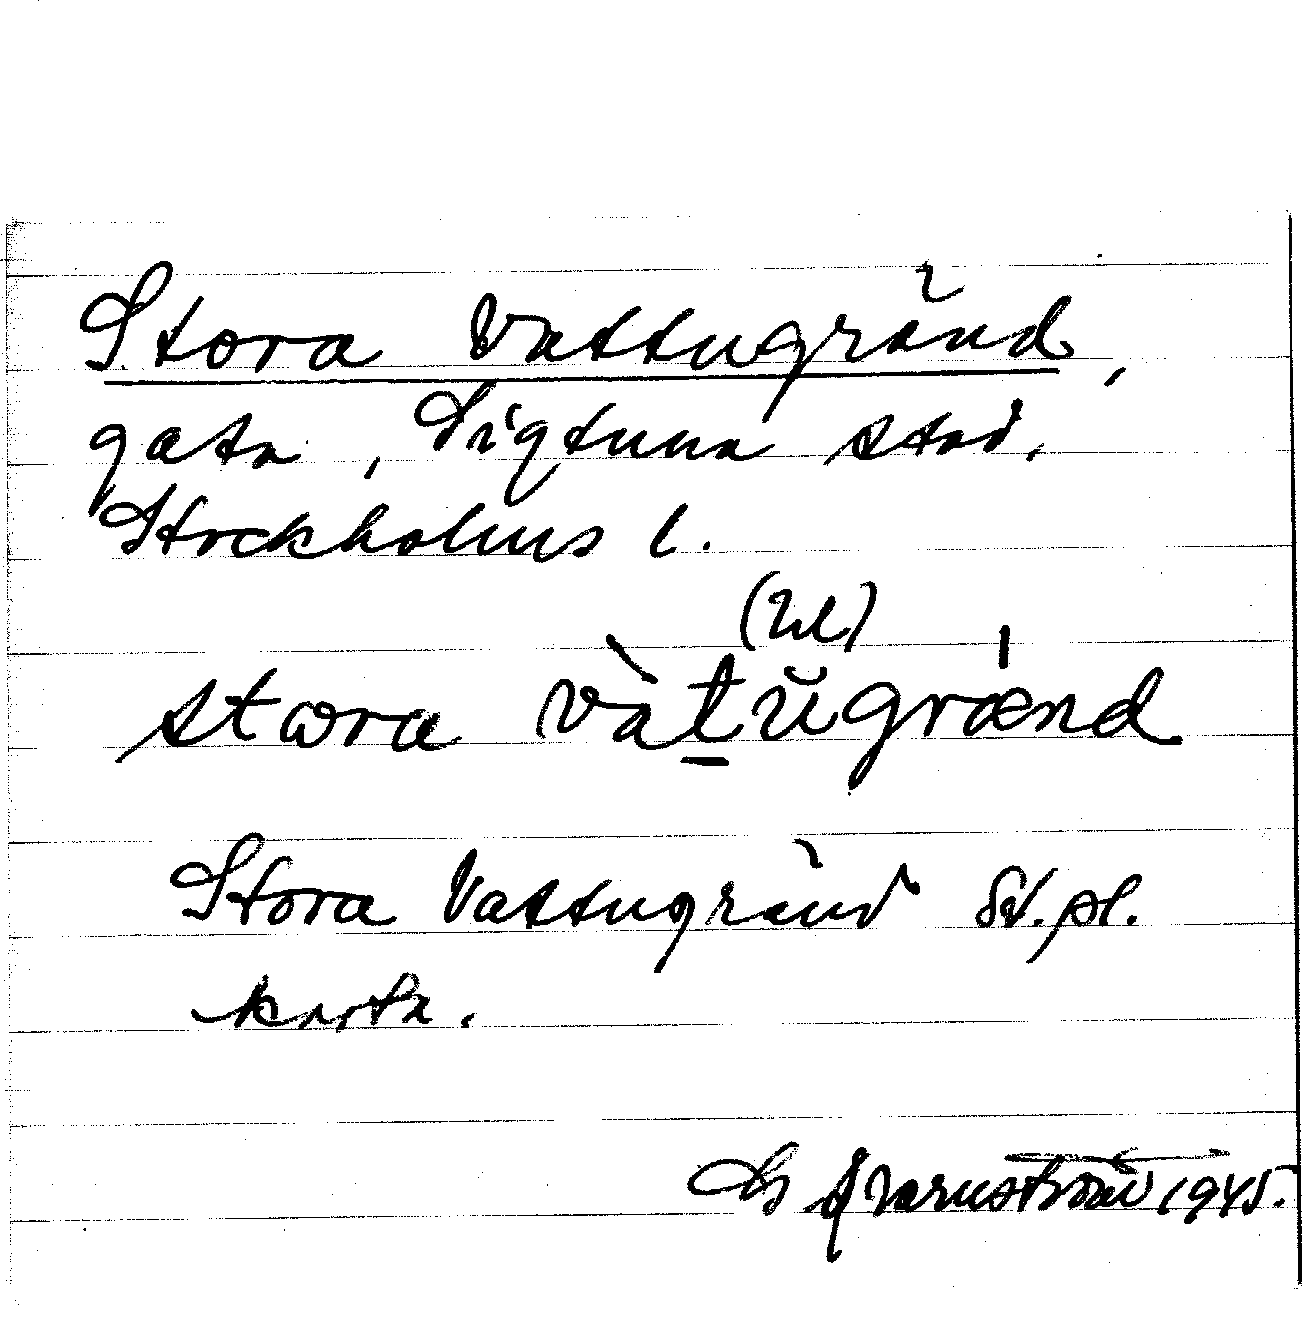 Stora Vattugränd,
gata, Sigtuna stad,
Stockholms l.
(ul)
stωra vàt̲ŭgrænd
Stora Vattugränd St.pl.
karta.
Qvarnström 1945.